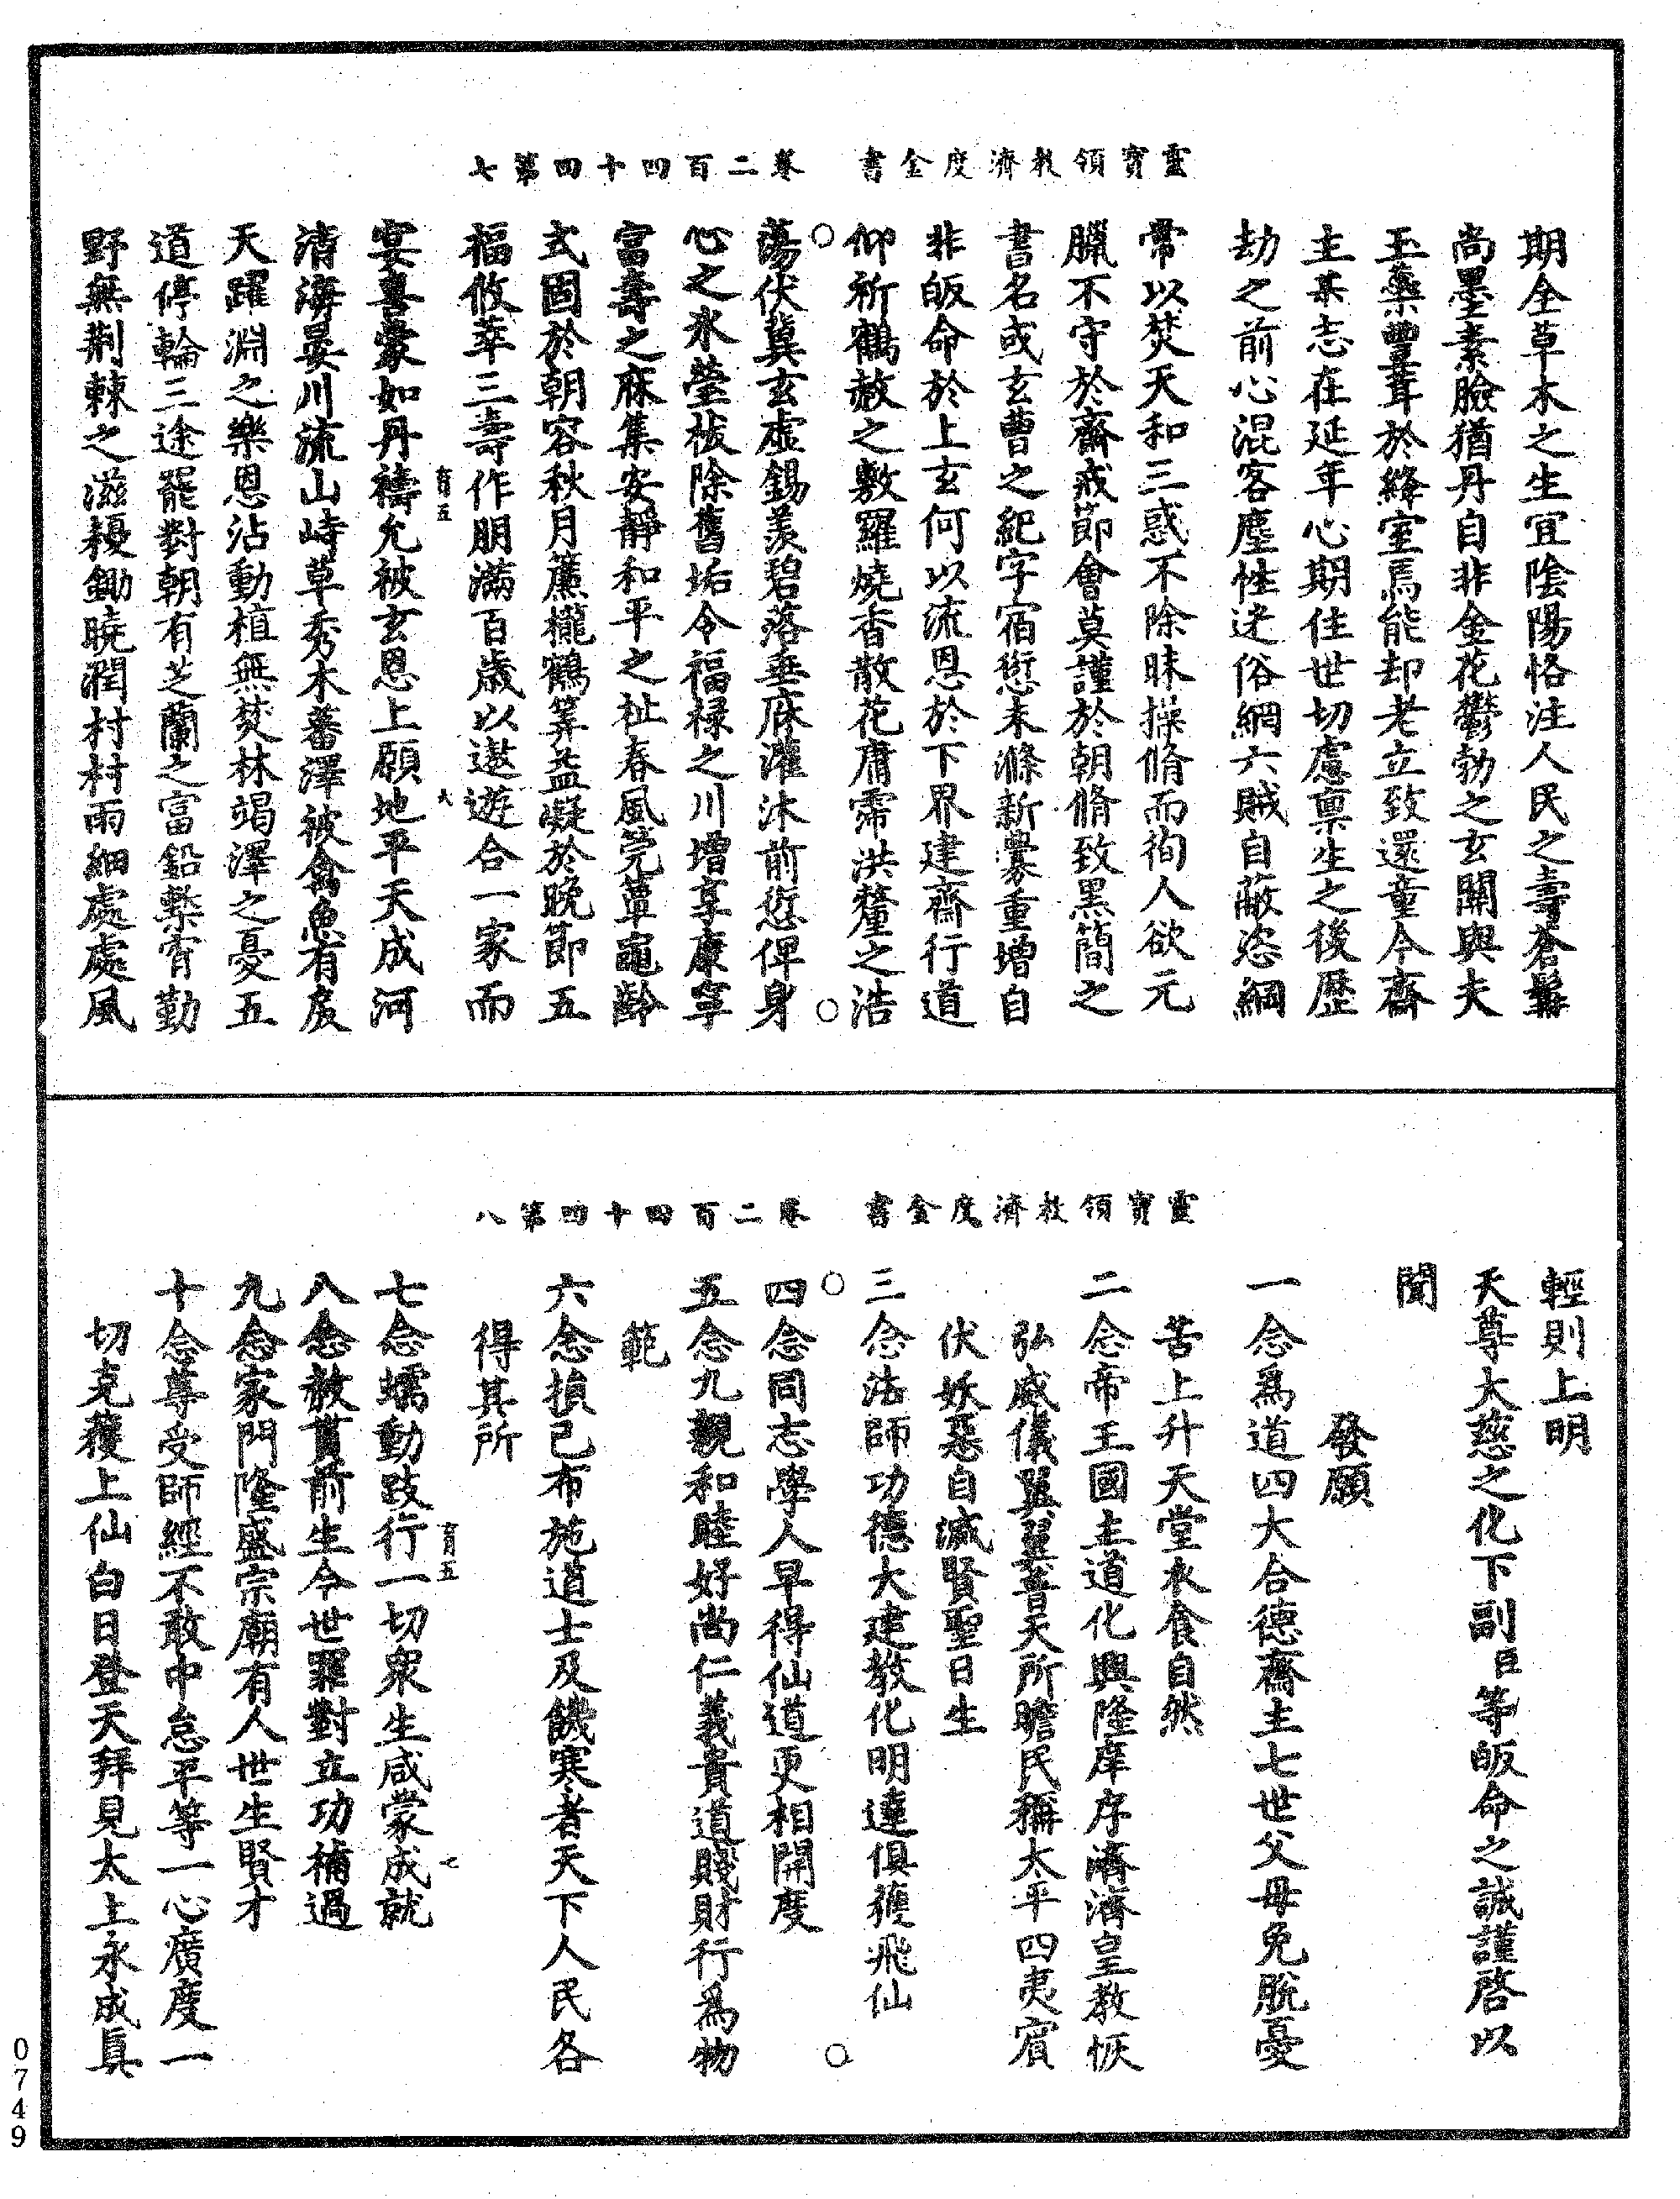 靈寶領教濟度金書　卷二百四十四第七
期全草木之生宜陰陽恪注人民之壽蒼髯
尚墨素臉猶丹自非金花鬱勃之玄關與夫
玉藥豐茸於絳室焉能却老立致還童今齋
主某志在延年心期住世切慮稟生之後歷
劫之前心混客塵性迷俗網六賊自蔽恣綱
常以焚天和三惑不除昧操脩而徇人欲元
臘不守於齋戒節會莫謹於朝脩致黑簡之
書名或玄曹之紀字宿愆未滌新釁重增自
非皈命於上玄何以流恩於下界建齋行道
仰祈鶴赦之敷羅燒香散花庸霈洪釐之浩
蕩伏冀玄虛錫羨碧落垂庥灌沐前愆俾身
心之氷瑩祓除舊垢令福祿之川增享康寧
富壽之庥集安靜和平之祉春風莞簟龜齡
式固於朝容秋月簾櫳鶴筭益凝於晚節五
福攸萃三壽作朋滿百歲以遨遊合一家而
宴喜蒙如丹禱允被玄恩上願地平天成河
清海晏川流山峙草秀木蕃澤被禽魚有戾
天躍淵之樂恩沾動植無焚林竭澤之憂五
道停輪三途罷對朝有芝蘭之富鉛槧宵勤
野無荆棘之滋耰鋤曉潤村村雨細處處風
育五
六
靈寶領教濟度金書　卷二百四十四第八
輕則上明
天尊大慈之化下副臣等皈命之誠謹啓以
聞
發願
一念爲道四大合德齋主七世父母免脫憂
苦上升天堂衣食自然
二念帝王國主道化興隆庠序濟濟皇教恢
弘威儀翼翼普天所瞻民稱太平四夷賓
伏妖惡自滅賢聖日生
三念法師功德大建教化明達俱獲飛仙
四念同志學人早得仙道更相開度
五念九親和睦好尚仁義貴道賤財行爲物
範
六念損己布施道士及饑寒者天下人民各
得其所
七念蠕動跂行一切衆生咸蒙成就
八念赦貰前生今世罪對立功補過
九念家門隆盛宗廟有人世生賢才
十念尊受師經不敢中怠平等一心廣度一
切克獲上仙白日登天拜見太上永成真
育五
七
0749